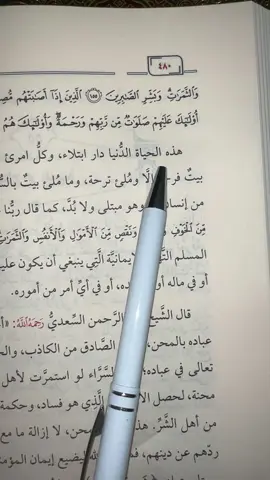 ٤٨٠
وَالثَّمَرَاتِ وَبَشِّرِ الصَّابِرِينَ ١٥٥ الَّذِينَ إِذَا أَصَابَتْهُم
أُوْلَئِكَ عَلَيْهِمْ صَلَوَاتٌ مِّن رَّبِّهِمْ وَرَحْمَةٌ وَأُوْلَئِكَ هُمُ
هذه الحياة الدُّنيا دار ابتلاء، وكلُّ امرئ
بيتٌ فر إلَّا ومُلئ ترحة، وما مُلئ بيتٌ
من إنسا وهو مبتلى ولا بُدَّ، كما قال ربُّنا
مِّنَ الْخَوْفِ وَنَقْصٍ مِّنَ الْأَمْوَالِ وَالْأَنفُسِ وَالثَّمَرَاتِ
المسلم الإيمانيَّة الَّتي ينبغي أن يكون
أو في ماله أو ده، أو في أيِّ أمر من أموره.
قال الشَّيخ الرَّحمن السعديُّ رَحِمَهُ اللَّهُ:
عباده بالمحن، الصَّادق من الكاذب،
تعالى في عباده؛ السَّرَّاء لو استمرَّت لأهل
محنة، لحصل الا الَّذي هو فساد، وحكمة
من أهل الشَّرِّ. هذه محن، لا إزالة ما مع
ردّهم عن دينهم، فما لله ليضيع إيمان